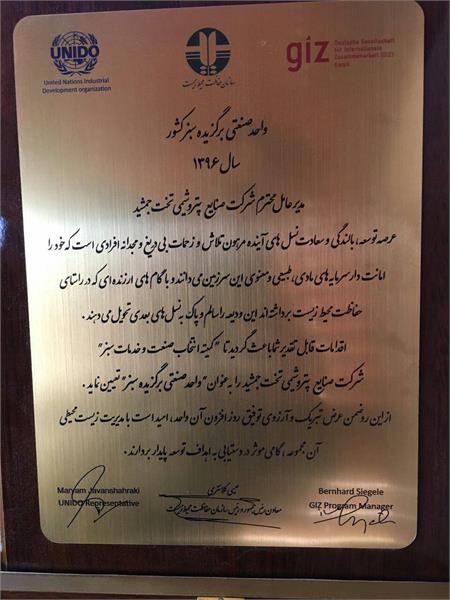 UNIDO
United Nations Industrial
Development organization
سازمان حفاظت محیط زیست
giz
Deutsche Gesellschaft
für Internationale
Zusammenarbeit (GIZ)
GmbH
واحد صنعتی برگزیده سبز کشور
سال ۱۳۹۶
مدیرعامل محترم شرکت صنایع پتروشیمی تخت جمشید
عرصه توسعه، بالندگی و سعادت نسل های آینده مرهون تلاش و زحمات بی دریغ و مجدانه افرادی است که خود را
امانت دار سرمایه های مادی، طبیعی و معنوی این سرزمین می دانند و با گام های ارزنده ای که در راستای
حفاظت محیط زیست برداشته اند این ودیعه را سالم و پاک به نسل های بعدی تحویل می دهند.
اقدامات قابل تقدیر شما باعث گردید تا "کمیته انتخاب صنعت و خدمات سبز"
شرکت صنایع پتروشیمی تخت جمشید را به عنوان "واحد صنعتی برگزیده سبز" تعیین نماید.
از این رو ضمن عرض تبریک و آرزوی توفیق روز افزون آن واحد، امید است با مدیریت زیست محیطی
آن مجموعه، گامی موثر در دستیابی به اهداف توسعه پایدار بردارند.
Maryam Javanshahraki
UNIDO Representative
عیسی کلانتری
معاون رئیس جمهور و رئیس سازمان حفاظت محیط زیست
Bernhard Siegele
GIZ Program Manager